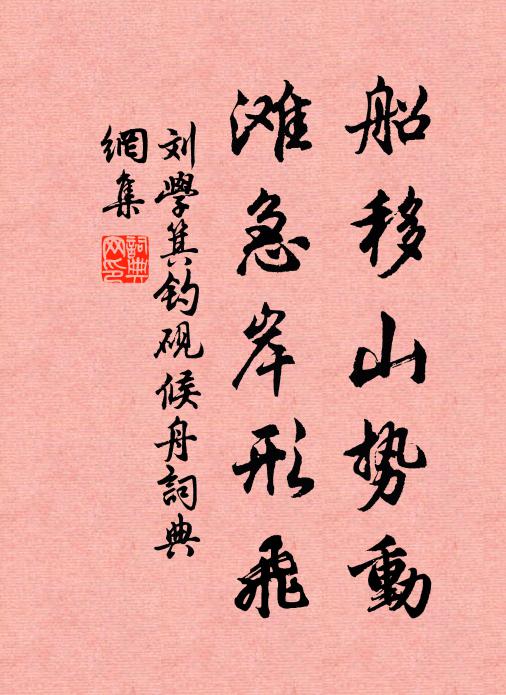 船移山势動
滩急岸形飛
刘學箕钓砚候舟詞典
網集
詞典
网印